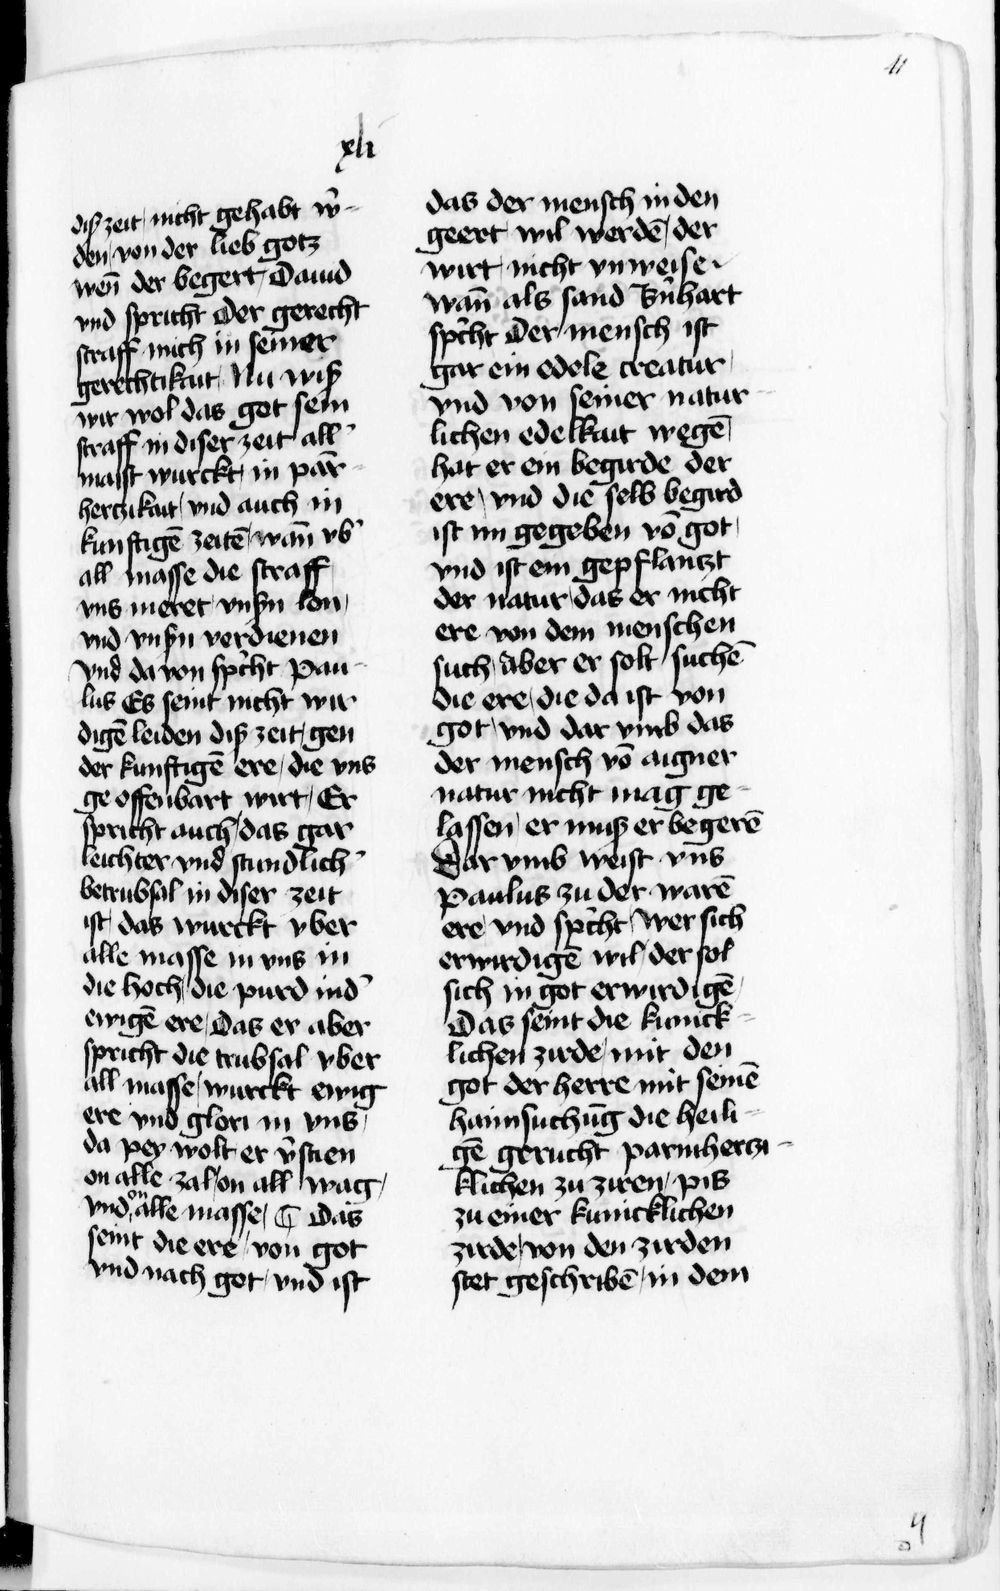 41
xli
diß zeit / nicht gehabt w̄-
den / von der lieb gotz
wen̄ der begert / Dauid
vnd spricht Der gerecht
straff mich in seiner
gerechtikait / Nu wiß
wir wol das got sein
straff in diser zeit all
maist wurckt / in par̄-
herczikait / vnd auch in
kunftigē zeitē / wan̄ vb̾
all masse die straff
vns meret / vnßn lon /
vnd vnßn verdienen
Vnd da von sp̾cht Pau-
lus Es seint nicht wir
digē leiden diß zeit / gen
der kunftigē ere / die vns
ge offenbart wirt / Er
spricht auch / das gar
leichter vnd stundlich̾
betrubsal in diser zeit
ist / das wurckt vber
alle masse in vns in
die hoch / die purd in d̾
ewigē ere / Das er aber
spricht die trubsal vber
all masse / wurckt ewig
ere vnd glori in vns /
da pey wolt er v̄stien
on alle zal / on all wag /
vnd on alle masse / ¶ Das
seint die ere / von got
vnd nach got / vnd ist
das der mensch in den
geert wil werdē / der
wirt / nicht vnweise
wan̄ als sand Bn̄hart
sp̾cht Der mensch ist
gar ein edele creatur /
vnd von seiner natur-
lichen edelkait wegē /
hat er ein begirde der
ere / vnd die selb begird
ist im gegeben vō got /
vnd ist ein gepflantzt
der natur / das er nicht
ere von dem menschen
such / Aber er solt suchē
die ere / die da ist von
got / vnd dar vmb das
der mensch vō aigner
natur nicht mag ge-
lassen / er muß er begerē
Dar vmb weist vns
Paulus zu der warē
ere / vnd sp̾cht / Wer sich
erwirdigē wil / der sol
sich in got erwirdigē /
Das seint die kunick-
lichen zirde / mit den
got der herre mit seinē
haimsuchūg die heili-
gē gerucht parmherczi-
klichen zu ziren / piß
zu einer kunicklichen
zirde / von den zirden
stet geschribē / in dem